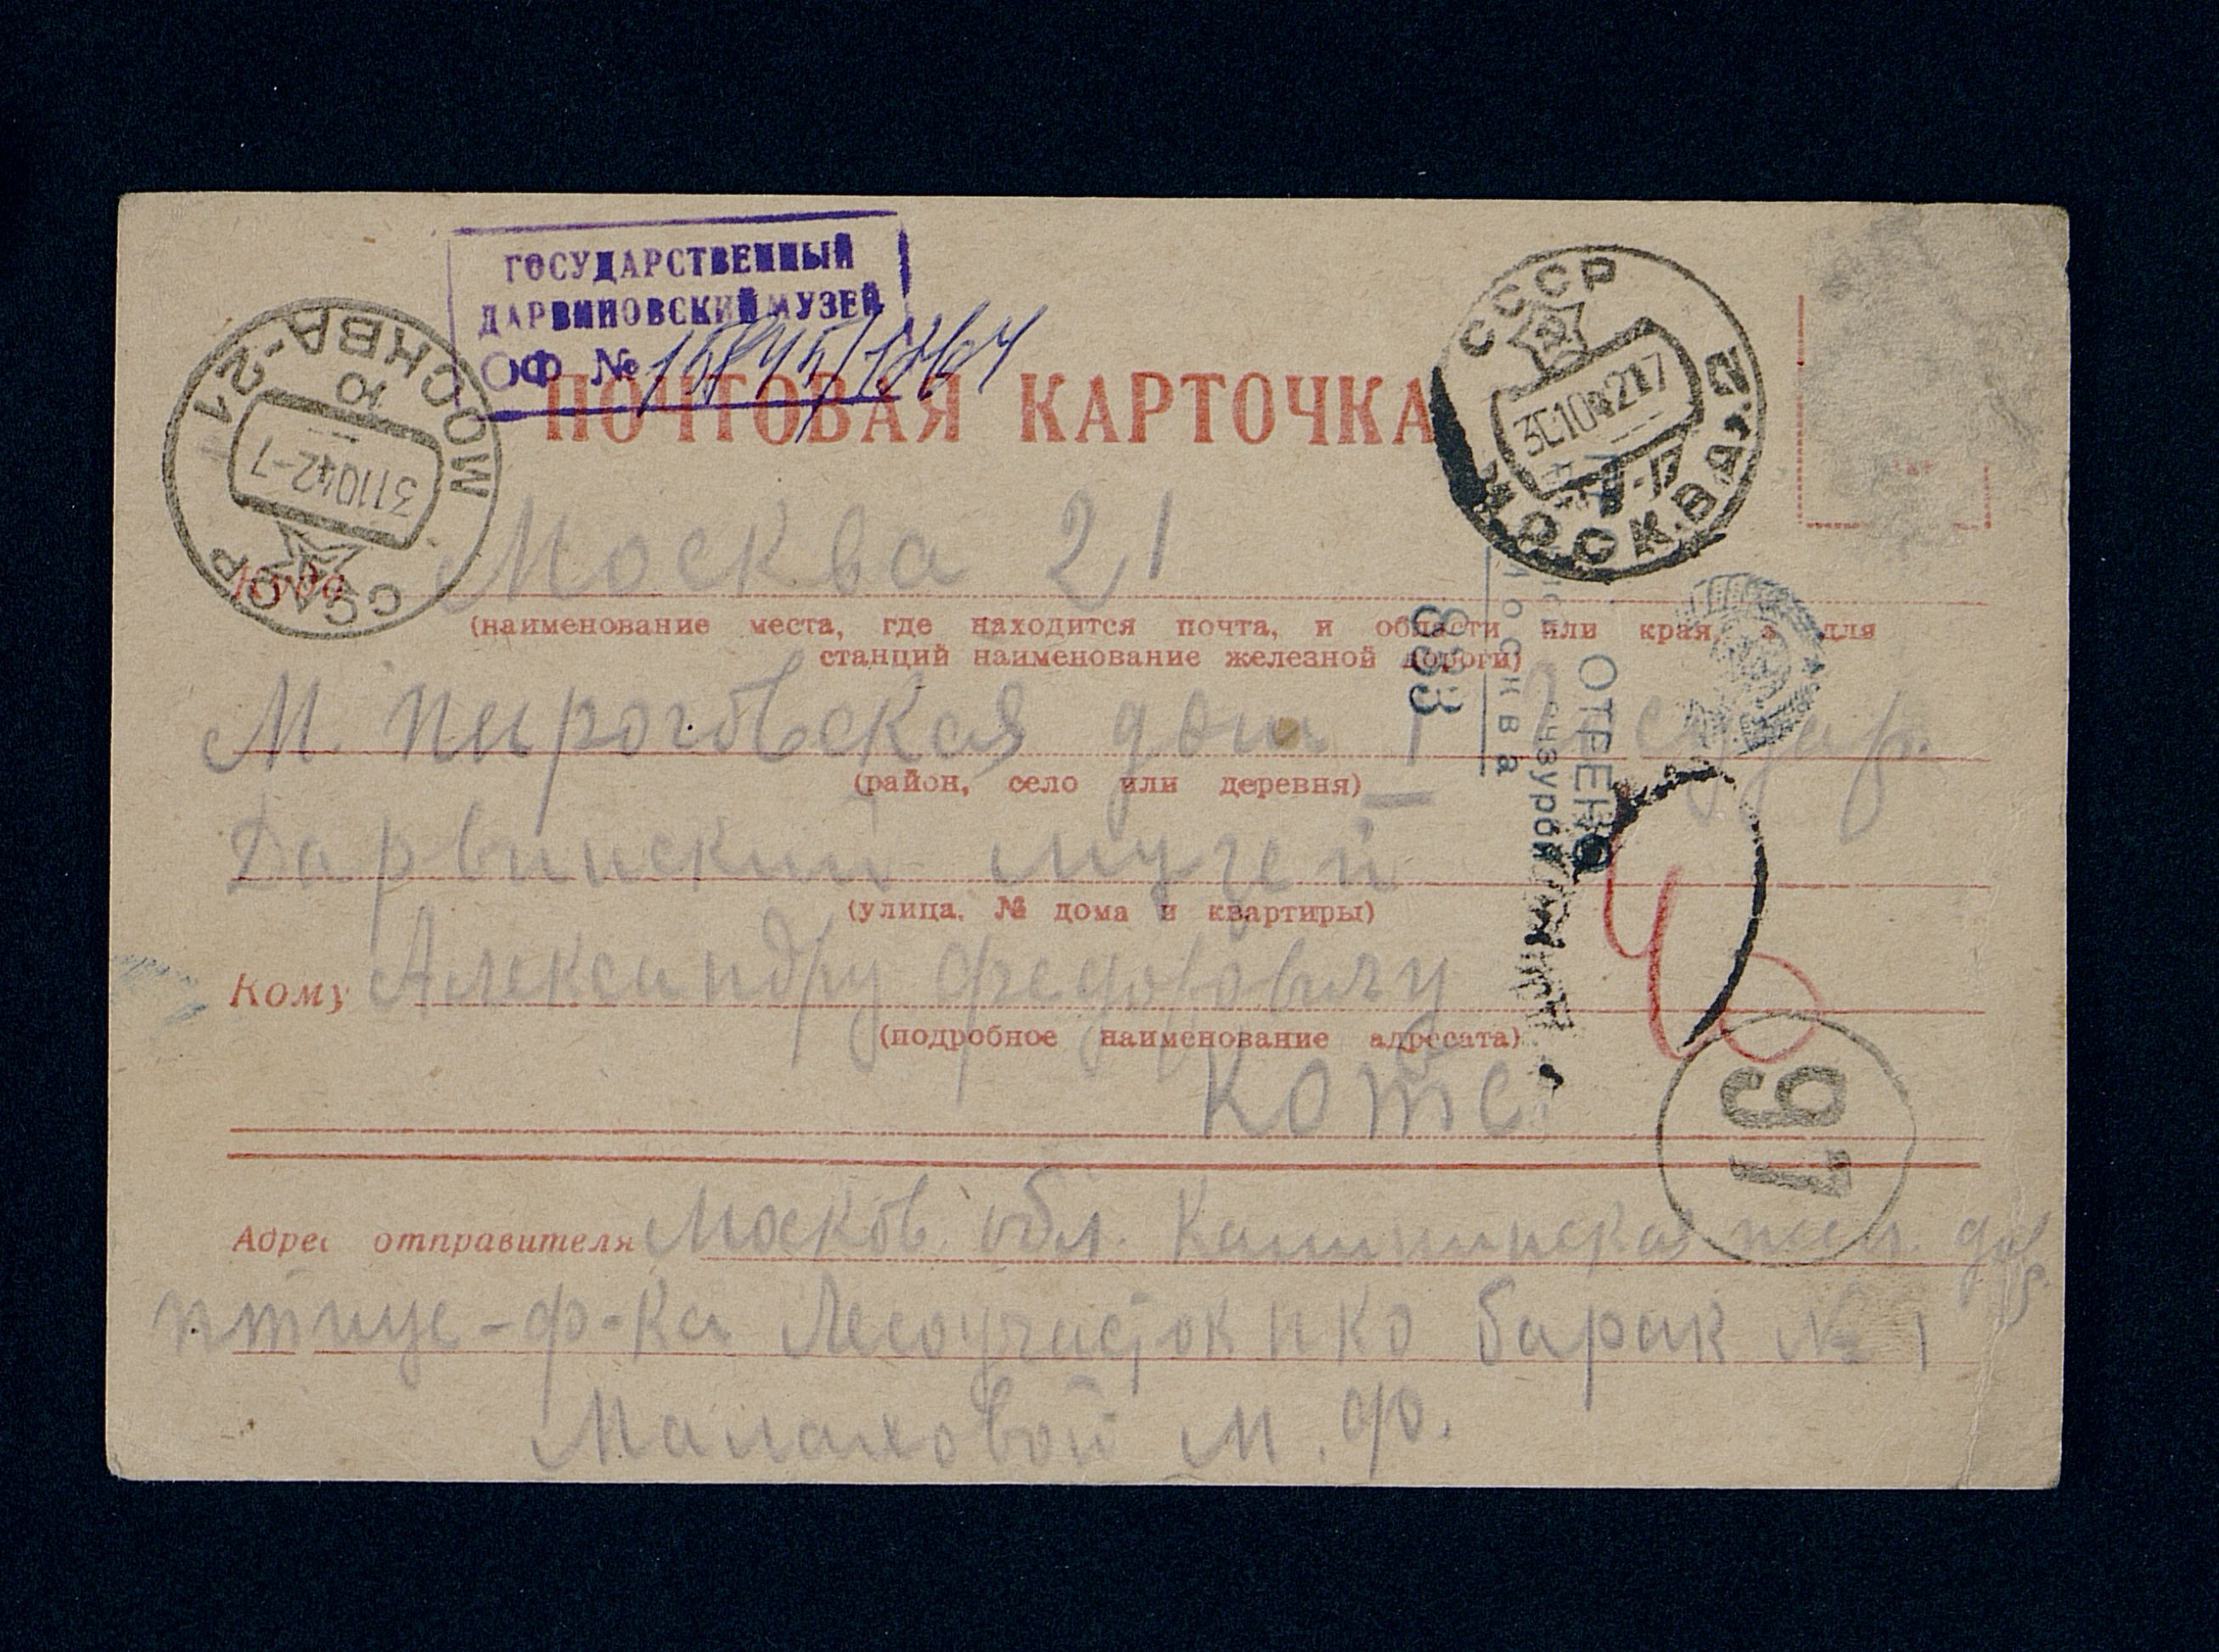 ГОСУДАРСТВЕННЫЙ
ДАРВИНОВСКИЙ МУЗЕЙ
ОФ №
ПОЧТОВАЯ КАРТОЧКА
МОСКВА-21
Ю
311042-7
СССР
СССР
МОСКВА
Куда Москва 21
(наименование места, где находится почта, и области или края, а для
станций наименование железной дороги)
М. Пироговская дом 1 Государ.
(район, село или деревня)
Дарвинский музей
(улица, № дома и квартиры)
Кому Александру Федоровичу
(подробное наименование адресата)
Котс
Москва
883
97
Адрес отправителя Москов обл. жел. дор.
птице-ф-ка Лесоучасток нко барак № 1
Малаховой М. Ф.